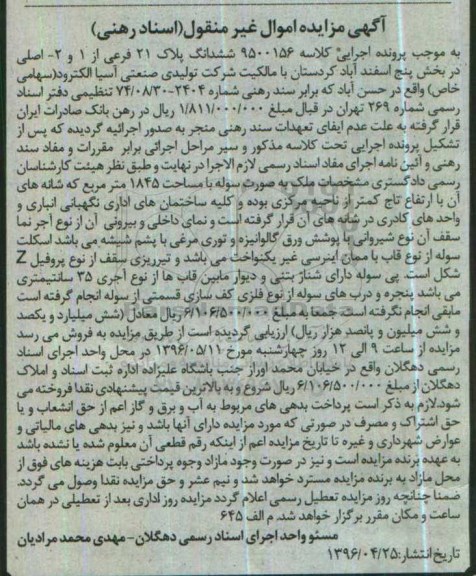 آگهی مزایده اموال غیر منقول(اسناد رهنی)
به موجب پرونده اجرایی کلاسه ۹۵۰۰۱۵۶ ششدانگ پلاک ۲۱ فرعی از ۱ و ۲- اصلی
در بخش پنج اسفند آباد کردستان با مالکیت شرکت تولیدی صنعتی آسیا الکترود(سهامی
خاص) واقع در حسن آباد که برابر سند رهنی شماره ۲۴۰۴-۷۴/۰۸/۳۰ تنظیمی دفتر اسناد
رسمی شماره ۲۶۹ تهران در قبال مبلغ ۱/۸۱۱/۰۰۰/۰۰۰ ریال در رهن بانک صادرات ایران
قرار گرفته به علت عدم ایفای تعهدات سند رهنی منجر به صدور اجرائیه گردیده که پس از
تشکیل پرونده اجرایی تحت کلاسه مذکور و سیر مراحل اجرائی برابر مقررات و مفاد سند
رهنی و آئین نامه اجرای مفاد اسناد رسمی لازم الاجرا در نهایت و طبق نظر هیئت کارشناسان
رسمی دادگستری مشخصات ملک به صورت سوله با مساحت ۱۸۴۵ متر مربع که شانه های
آن با ارتفاع تاج کمتر از ناحیه مرکزی بوده و کلیه ساختمان های اداری نگهبانی انباری و
واحد های کادری در شانه های آن قرار گرفته است و نمای داخلی و بیرونی آن از نوع آجر نما
سقف آن نوع شیروانی با پوشش ورق گالوانیزه و توری مرغی با پشم شیشه می باشد اسکلت
سوله از نوع قاب با ممان اینرسی غیر یکنواخت می باشد و تیرریزی سقف از نوع پروفیل Z
شکل است. پی سوله دارای شناژ بتنی و دیوار مابین قاب ها از نوع آجری ۳۵ سانتیمتری
می باشد پنجره و درب های سوله از نوع فلزی کف سازی قسمتی از سوله انجام گرفته است
مابقی انجام نگرفته است جمعا به مبلغ ۶/۱۰۶/۵۰۰/۰۰۰ ریال معادل (شش میلیارد و یکصد
و شش میلیون و پانصد هزار ریال) ارزیابی گردیده است از طریق مزایده به فروش می رسد
مزایده از ساعت ۹ الی ۱۲ روز چهارشنبه مورخ ۱۳۹۶/۰۵/۱۱ در محل واحد اجرای اسناد
رسمی دهگلان واقع در خیابان محمد اوراز جنب باشگاه علیزاده اداره ثبت اسناد و املاک
دهگلان از مبلغ ۶/۱۰۶/۵۰۰/۰۰۰ ریال شروع و به بالاترین قیمت پیشنهادی نقدا فروخته می
شود.لازم به ذکر است پرداخت بدهی های مربوط به آب و برق و گاز اعم از حق انشعاب و یا
حق اشتراک و مصرف در صورتی که مورد مزایده دارای آنها باشد و نیز بدهی های مالیاتی و
عوارض شهرداری و غیره تا تاریخ مزایده اعم از اینکه رقم قطعی آن معلوم شده یا نشده باشد
به عهده برنده مزایده است و نیز در صورت وجود مازاد وجوه پرداختی بابت هزینه های فوق از
محل مازاد به برنده مزایده مسترد خواهد شد و نیم عشر و حق مزایده نقدا وصول می گردد.
ضمنا چنانچه روز مزایده تعطیل رسمی اعلام گردد مزایده روز اداری بعد از تعطیلی در همان
ساعت و مکان مقرر برگزار خواهد شد. م الف ۶۴۵
مسئو واحد اجرای اسناد رسمی دهگلان- مهدی محمد مرادیان
تاریخ انتشار:۱۳۹۶/۰۴/۲۵